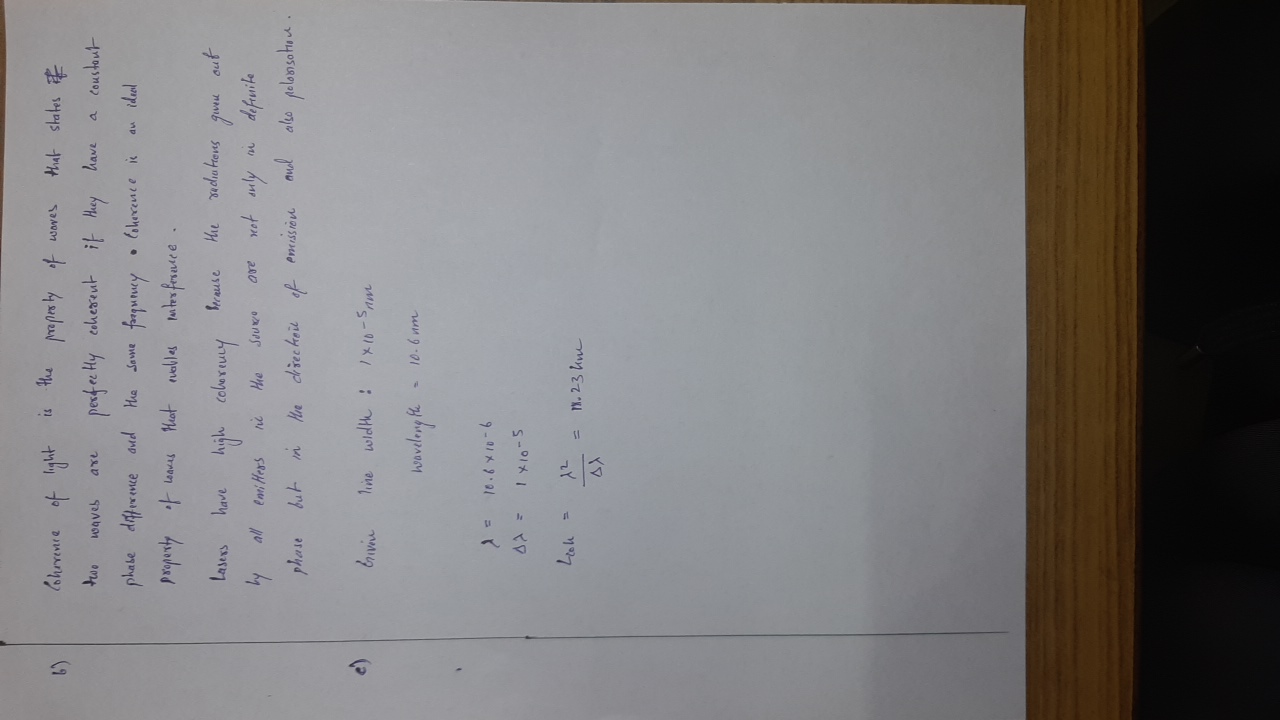 b) Coherence of light is the property of waves that states
two waves are perfectly coherent if they have a constant
phase difference and the same frequency . Coherence is an ideal
property of waves that enables interference .
Lasers have high coherency because the radiations given out
by all emitters in the source are not only in definite
phase but in the direction of emission and also polarisation .
c) Given line width : 1 × 10 - 5 nm
wavelength = 10.6 nm
λ = 10.6 × 10 - 6
Δλ = 1 × 10 - 5
Lcoh = λ2 / Δλ = 11.23 km